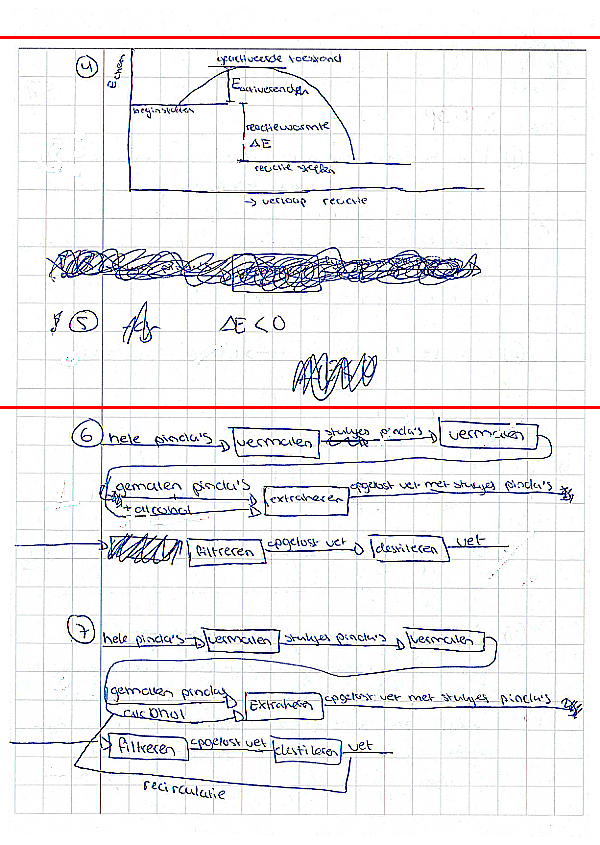 4
Echem
geactiveerde toestand
Eactiveringen
beginstoffen
reactiewarmte
ΔE
reactie stoffen
→ verloop reactie
5 ΔE < 0
6 hele pinda's vermalen stukjes pinda's vermalen
gemalen pinda's
+ alcohol extraheren opgelost vet met stukjes pinda's
filtreren opgelost vet destileren vet
7 hele pinda's vermalen stukjes pinda's vermalen
gemalen pindas
alcohol Extraheren opgelost vet met stukjes pinda's
filtreren opgelost vet destileren vet
recirculatie